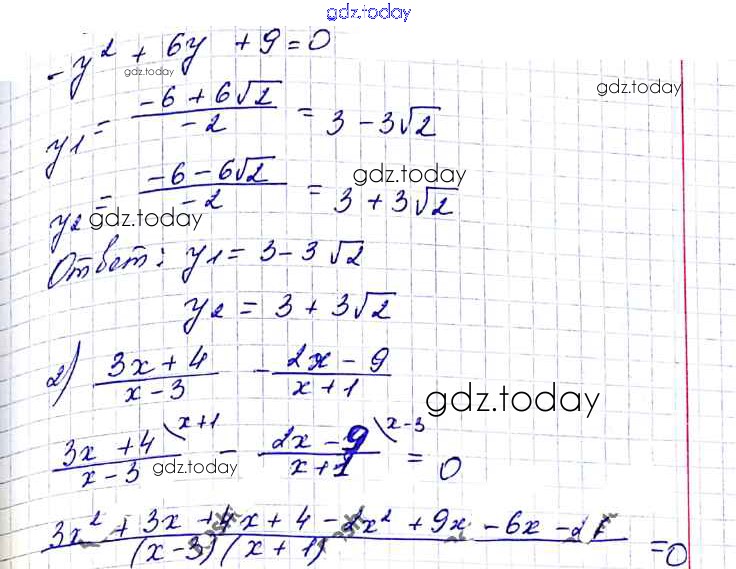 gdz.today
-y² + 6y + 9 = 0
gdz.today
gdz.today
y1 = (-6 + 6√2)/(-2) = 3 - 3√2
gdz.today
y2 = (-6 - 6√2)/(-2) = 3 + 3√2
gdz.today
Ответ: y1 = 3 - 3√2
y2 = 3 + 3√2
2) (3x + 4)/(x - 3) - (2x - 9)/(x + 1)
gdz.today
(3x + 4)/(x - 3) \x+1 - (2x - 9)/(x + 1) \x-3 = 0
gdz.today
(3x² + 3x + 4x + 4 - 2x² + 9x - 6x - 2)/((x - 3)(x + 1)) = 0